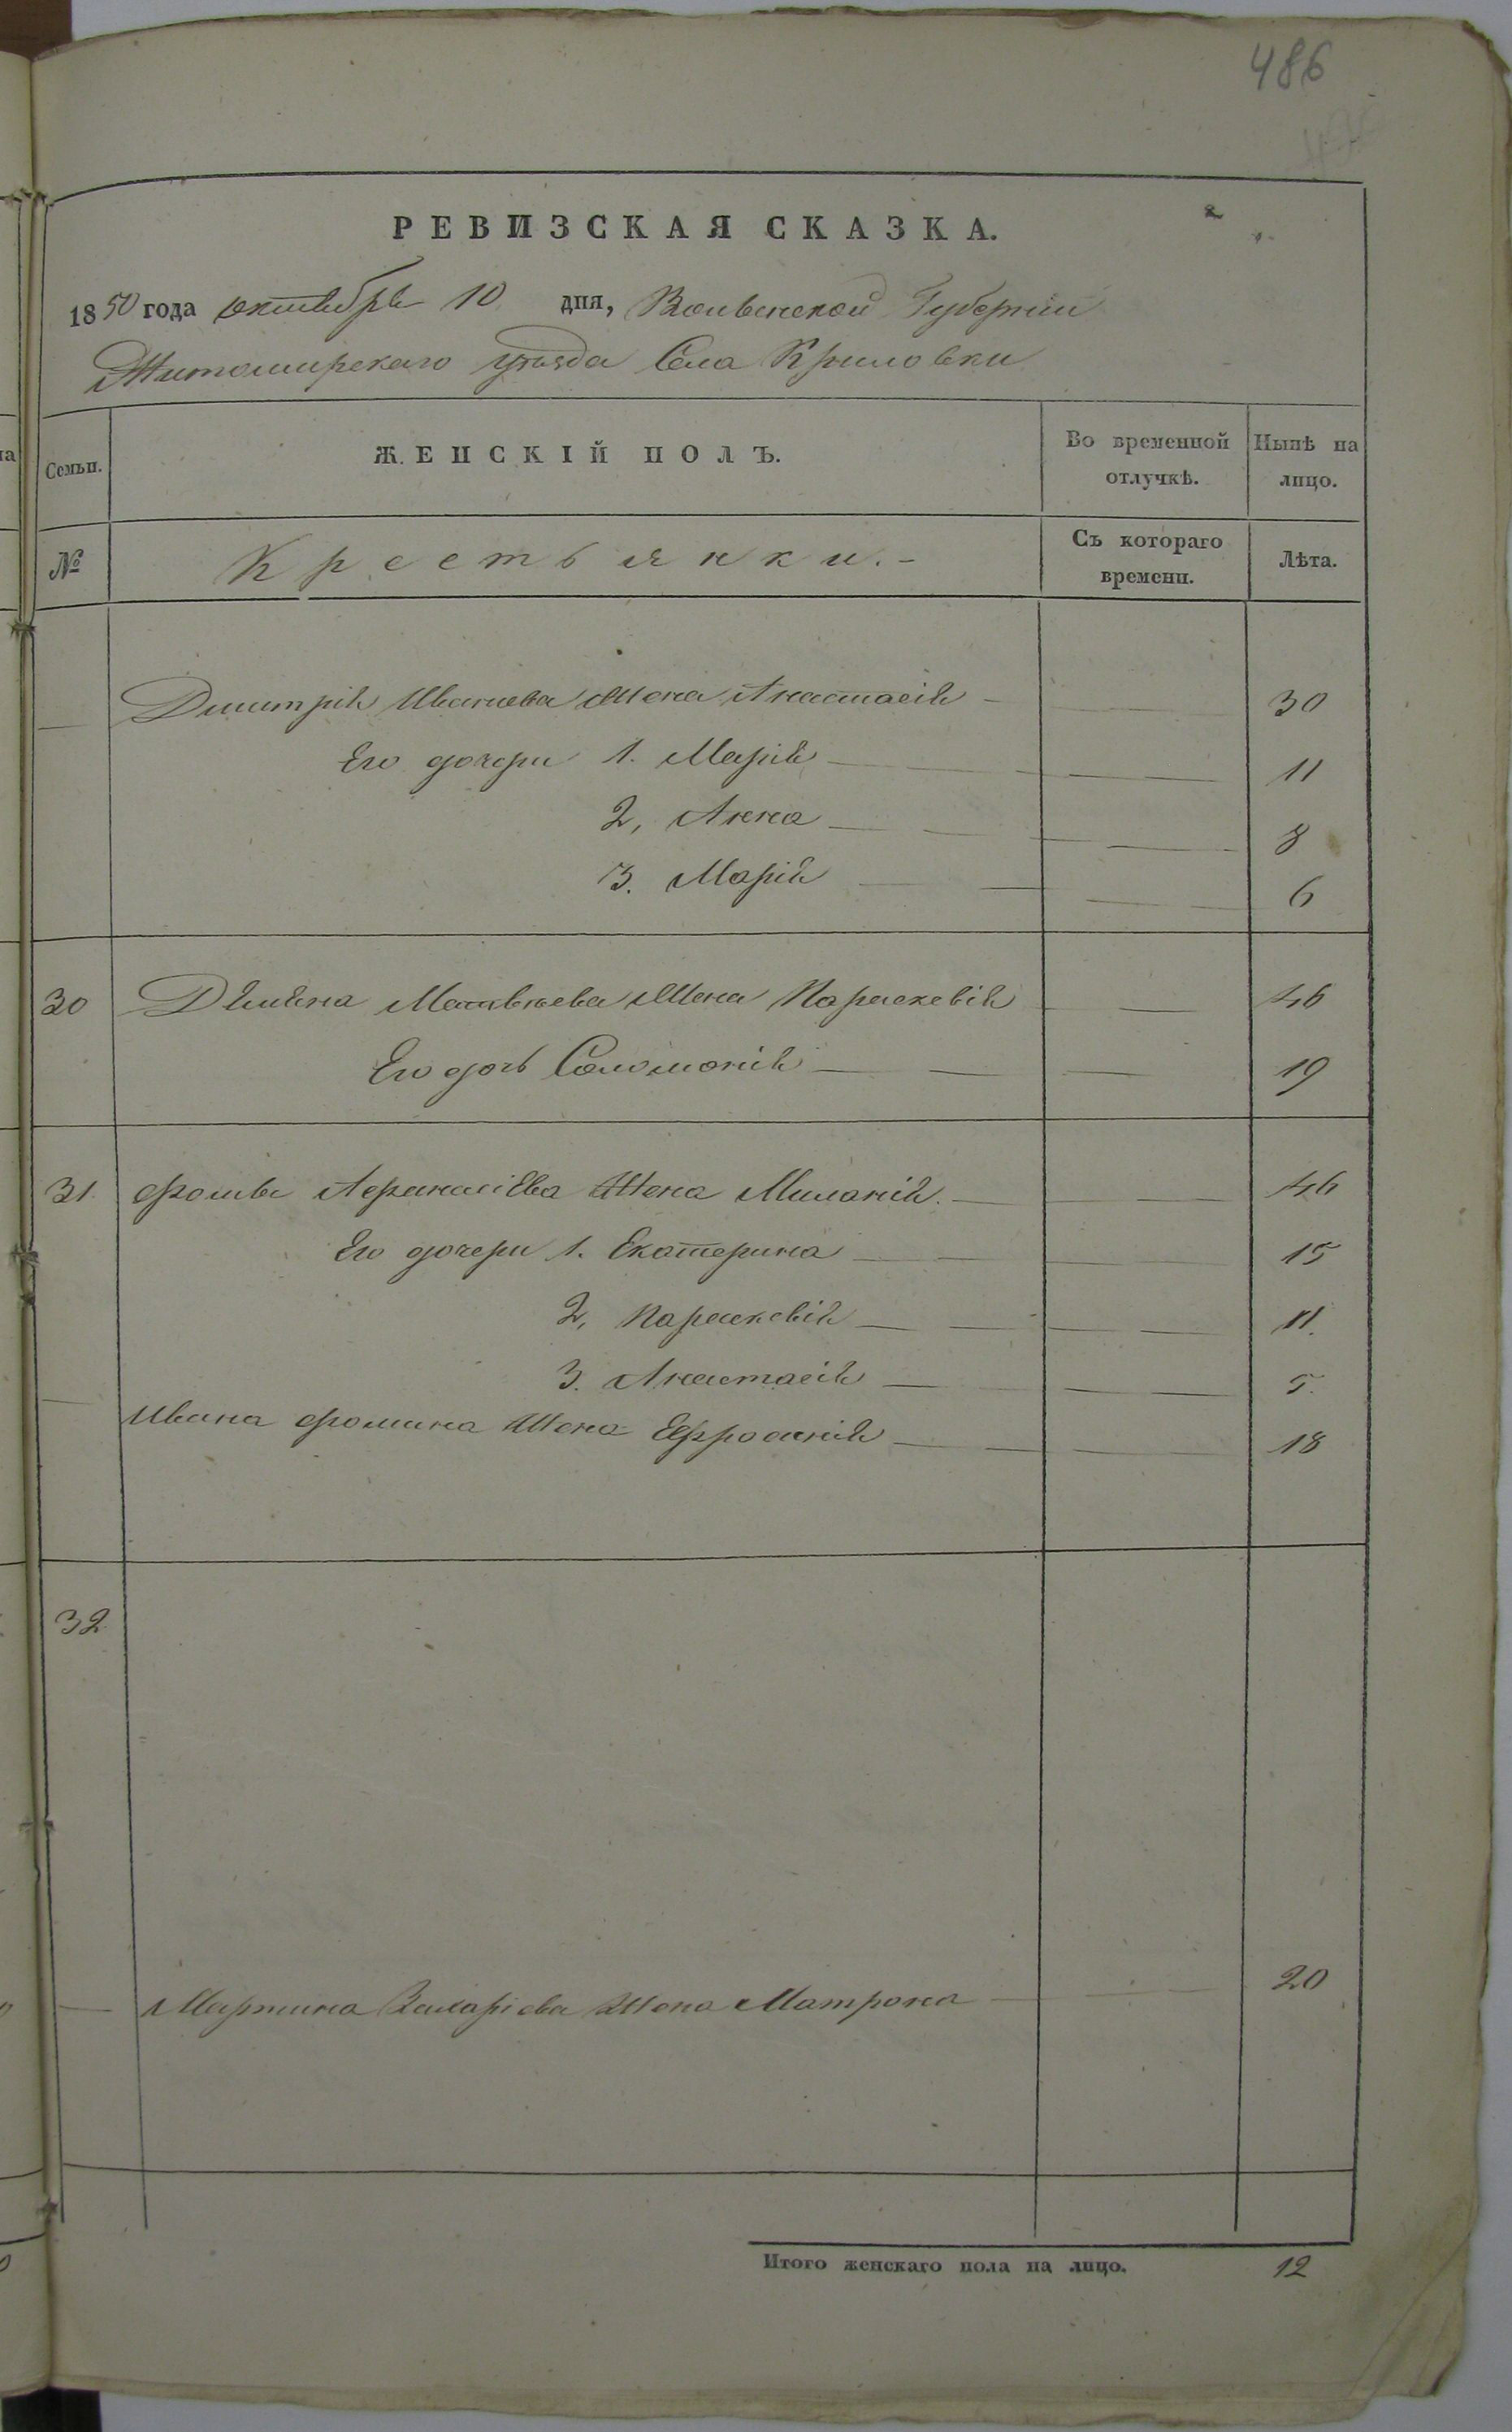 486
РЕВИЗСКАЯ СКАЗКА.
1850 года октября 10 дня, Волынской Губернии
Житомирскаго уѣзда Села Криловки
Семьи.
ЖЕНСКІЙ ПОЛЪ.
Во временной отлучкѣ.
Нынѣ на лицо.
№
Крестьянки. -
Съ котораго времени.
Лѣта.
Дмитрія Иванова Жена Анастасія 30
Его дочери 1. Марія 11
2, Анна 8
3. Марія 6
30 Демяна Матвѣева Жена Параскевія 46
Его дочь Соломонія 19
31. Фомы Афанасіева Жена Миланія. 46
Его дочери 1. Екатерина 15
2, Параскевія 11.
3. Анастасія 5.
Ивана Фомина Жена Ефросинія 18
32
Мартина Захаріева Жена Матрона 20
Итого женскаго пола на лицо. 12